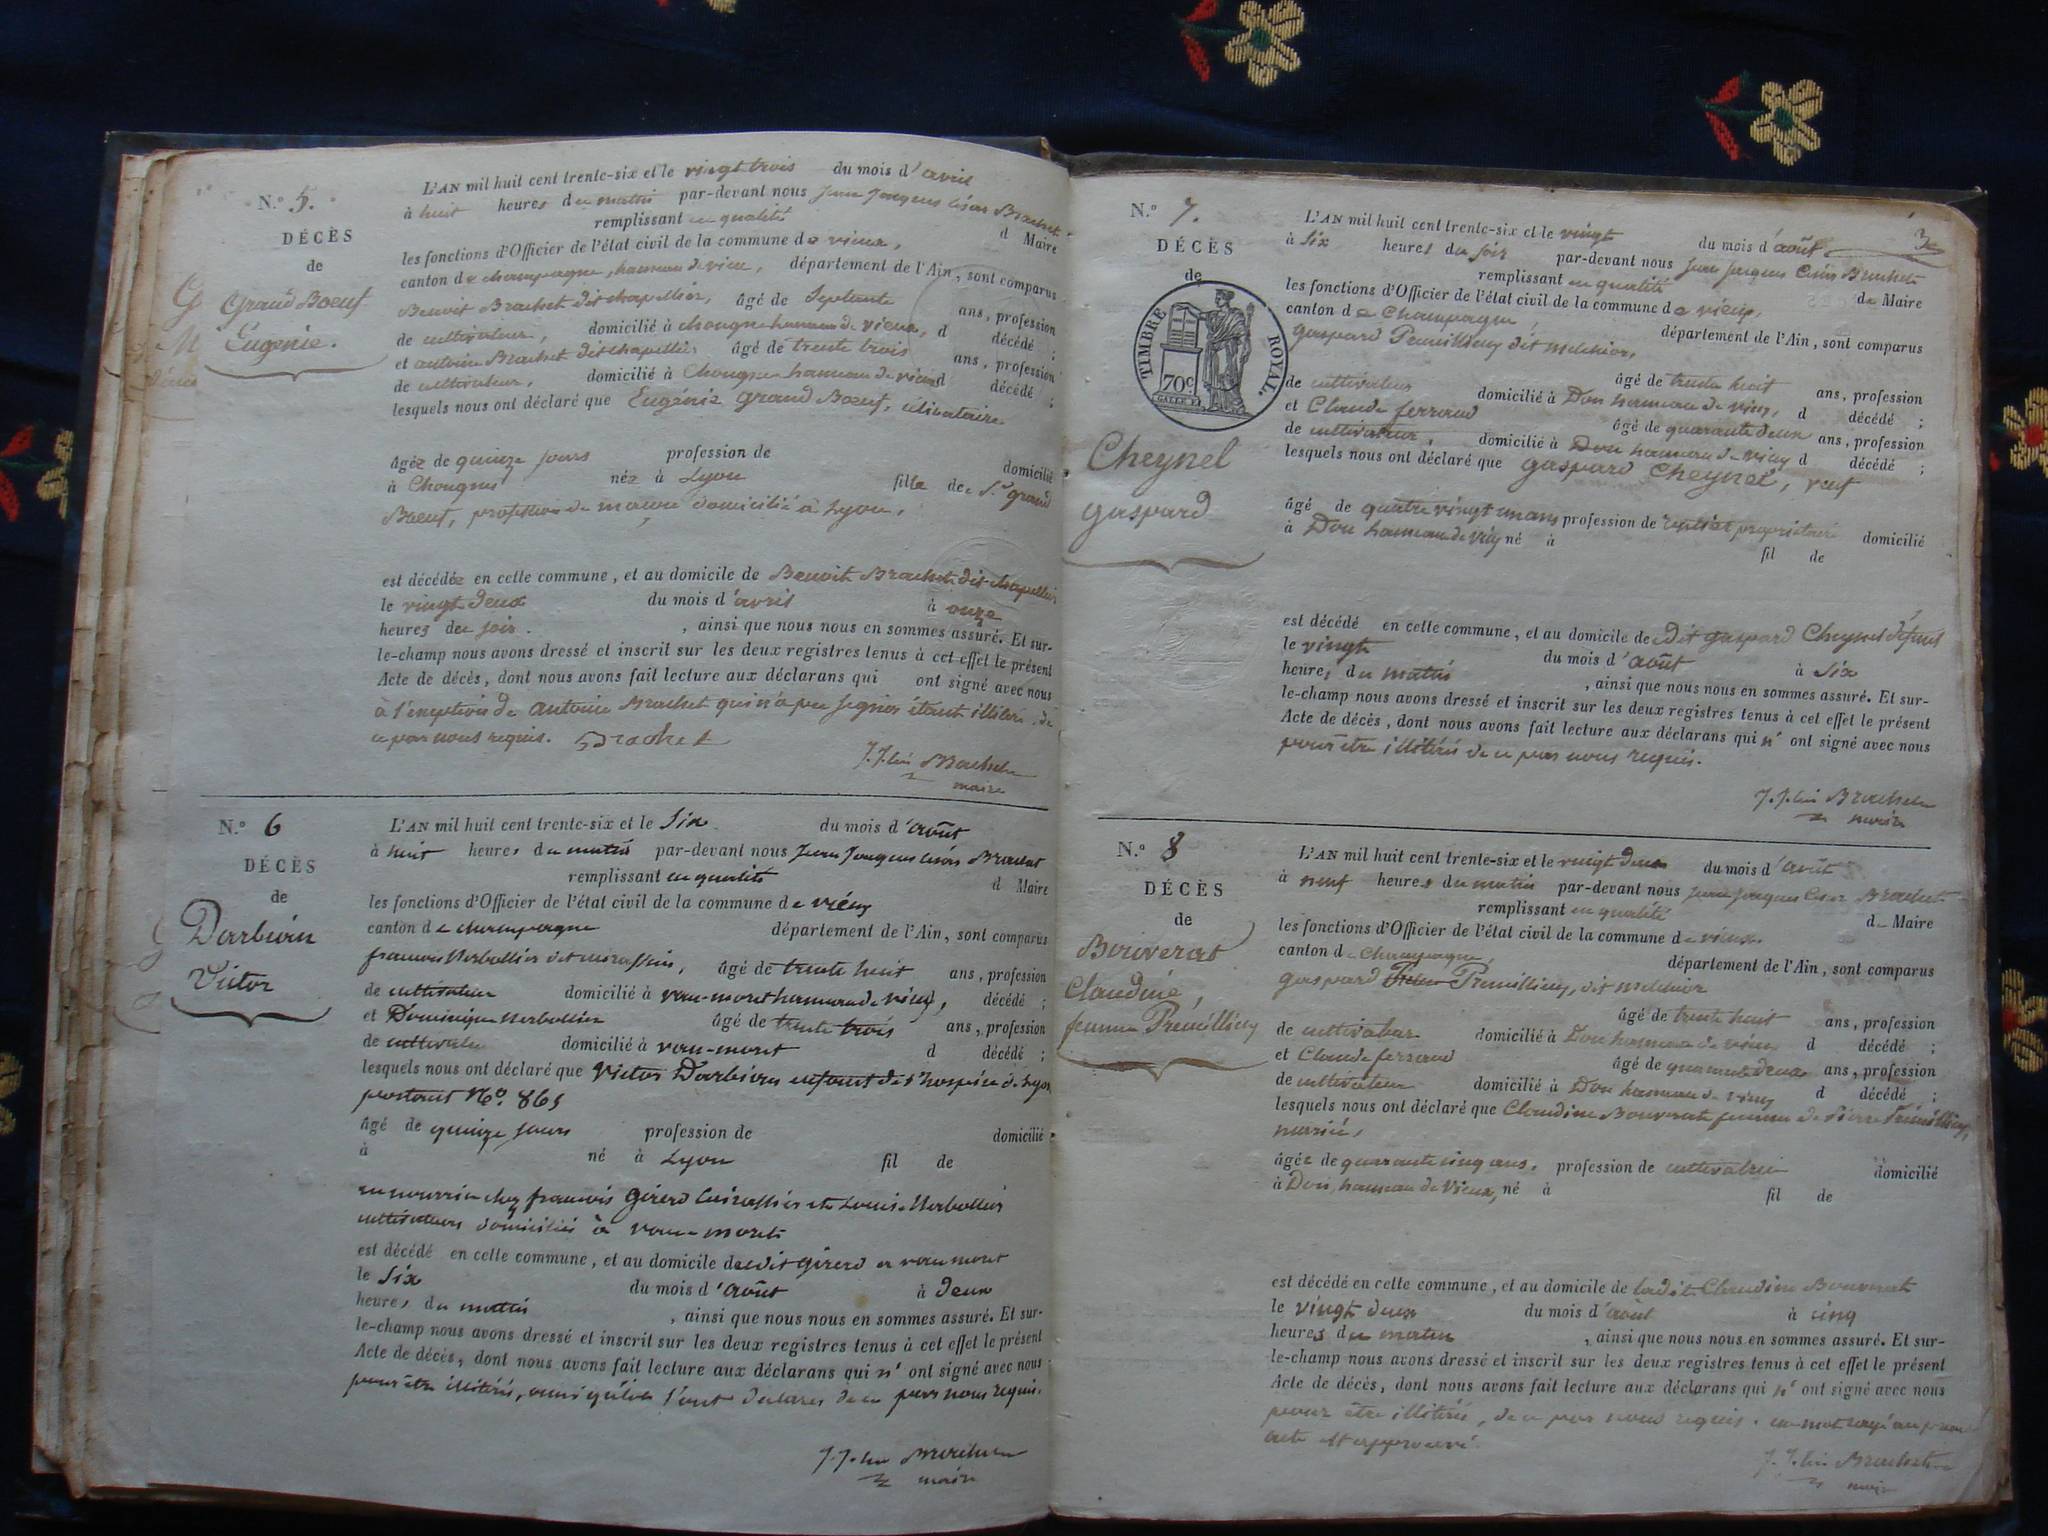 N.º 5.
DÉCÈS
de
Grand Boeuf
Eugénie.
L'AN mil huit cent trente-six et le vingt trois du mois d'avril
à huit heures du matin par-devant nous Jean Jacques César Brachet
remplissant en qualité d Maire
les fonctions d'Officier de l'état civil de la commune de vieux,
canton de champagne, hameau de vieu, département de l'Ain, sont comparus
Benoit Brachet dit chapellier, âgé de Septante ans, profession
de cultivateur, domicilié à chongne hameau de vieux, d décédé ;
et antoine Brachet dit chapellier âgé de trente trois ans, profession
de cultivateur, domicilié à Chongne hameau de vieu d décédé ;
lesquels nous ont déclaré que Eugénie Grand Boeuf, célibataire
âgée de quinze jours profession de domicilié
à Chongne née à Lyon fille de S.r grand
Boeuf, profession de domicilié à Lyon,
est décédée en cette commune, et au domicile de Benoit Brachet dit chapellier
le vingt deux du mois d'avril à onze
heures du soir. , ainsi que nous nous en sommes assuré. Et sur-
le-champ nous avons dressé et inscrit sur les deux registres tenus à cet effet le présent
Acte de décès, dont nous avons fait lecture aux déclarans qui ont signé avec nous
à l'exception de antoine Brachet qui n'a pu signer étant illitéré, de
ce par nous requis. Brachet
J. J. César Brachet
maire
N.º 6
DÉCÈS
de
Darbian
Victor
L'AN mil huit cent trente-six et le Six du mois d'août
à huit heures du matin par-devant nous Jean Jacques César Brachet
remplissant en qualité d Maire
les fonctions d'Officier de l'état civil de la commune de vieux
canton de champagne département de l'Ain, sont comparus
francois dit âgé de trente huit ans, profession
de cultivateur domicilié à hameau de vieux, décédé ;
et Dominique âgé de trente trois ans, profession
de domicilié à d décédé ;
lesquels nous ont déclaré que Victor Darbian enfant de l'hospice de Lyon
portant N.º 865
âgé de quinze jours profession de domicilié
à né à Lyon fil de
en nourrice chez francois Girerd et Louise
cultivateurs domiciliés à
est décédé en cette commune, et au domicile dudit girerd a
le Six du mois d'août à deux
heures du matin , ainsi que nous nous en sommes assuré. Et sur-
le-champ nous avons dressé et inscrit sur les deux registres tenus à cet effet le présent
Acte de décès, dont nous avons fait lecture aux déclarans qui n' ont signé avec nous
pour être illitérés, ainsi qu'ils l'ont déclarés de ce par nous requis.
J. J. César Brachet
maire
3e
N.º 7.
DÉCÈS
de
TIMBRE ROYAL.
70c
Cheynel
gaspard
L'AN mil huit cent trente-six et le vingt du mois d'août
à six heures du soir par-devant nous Jean Jacques César Brachet
remplissant en qualité de Maire
les fonctions d'Officier de l'état civil de la commune de vieux,
canton de Champagne, département de l'Ain, sont comparus
gaspard dit melchior,
âgé de trente huit ans, profession
de cultivateur domicilié à Don hameau de vieu, d décédé ;
et Claude ferrand âgé de quarante deux ans, profession
de cultivateur, domicilié à Don hameau de vieu d décédé ;
lesquels nous ont déclaré que gaspard Cheynel, veuf
âgé de quatre vingt un ans profession de rentier propriétaire domicilié
à Don hameau de vieu né à fil de
est décédé en cette commune, et au domicile dudit gaspard Cheynel défunt
le vingt du mois d'août à Six
heures du matin , ainsi que nous nous en sommes assuré. Et sur-
le-champ nous avons dressé et inscrit sur les deux registres tenus à cet effet le présent
Acte de décès, dont nous avons fait lecture aux déclarans qui n' ont signé avec nous
pour être illitérés de ce par nous requis.
J. J. César Brachet
maire
N.º 8
DÉCÈS
de
Bouverat
Claudine,
femme
L'AN mil huit cent trente-six et le vingt deux du mois d'août
à neuf heures du matin par-devant nous Jean Jacques César Brachet
remplissant en qualité de Maire
les fonctions d'Officier de l'état civil de la commune de vieux
canton de Champagne, département de l'Ain, sont comparus
gaspard dit melchior
âgé de trente huit ans, profession
de cultivateur domicilié à Don hameau de vieux d décédé ;
et Claude ferrand âgé de quarante deux ans, profession
de cultivateur domicilié à Don hameau de vieu d décédé ;
lesquels nous ont déclaré que Claudine Bouverat femme de Pierre
mariée,
âgée de quarante cinq ans, profession de cultivatrice domicilié
à Don, hameau de Vieux, né à fil de
est décédé en cette commune, et au domicile de ladite Claudine Bouverat
le vingt deux du mois d'août à cinq
heures du matin , ainsi que nous nous en sommes assuré. Et sur-
le-champ nous avons dressé et inscrit sur les deux registres tenus à cet effet le présent
Acte de décès, dont nous avons fait lecture aux déclarans qui n' ont signé avec nous
pour être illitérés, de ce par nous requis. un mot rayé au présent
acte est approuvé.
J. J. César Brachet
maire